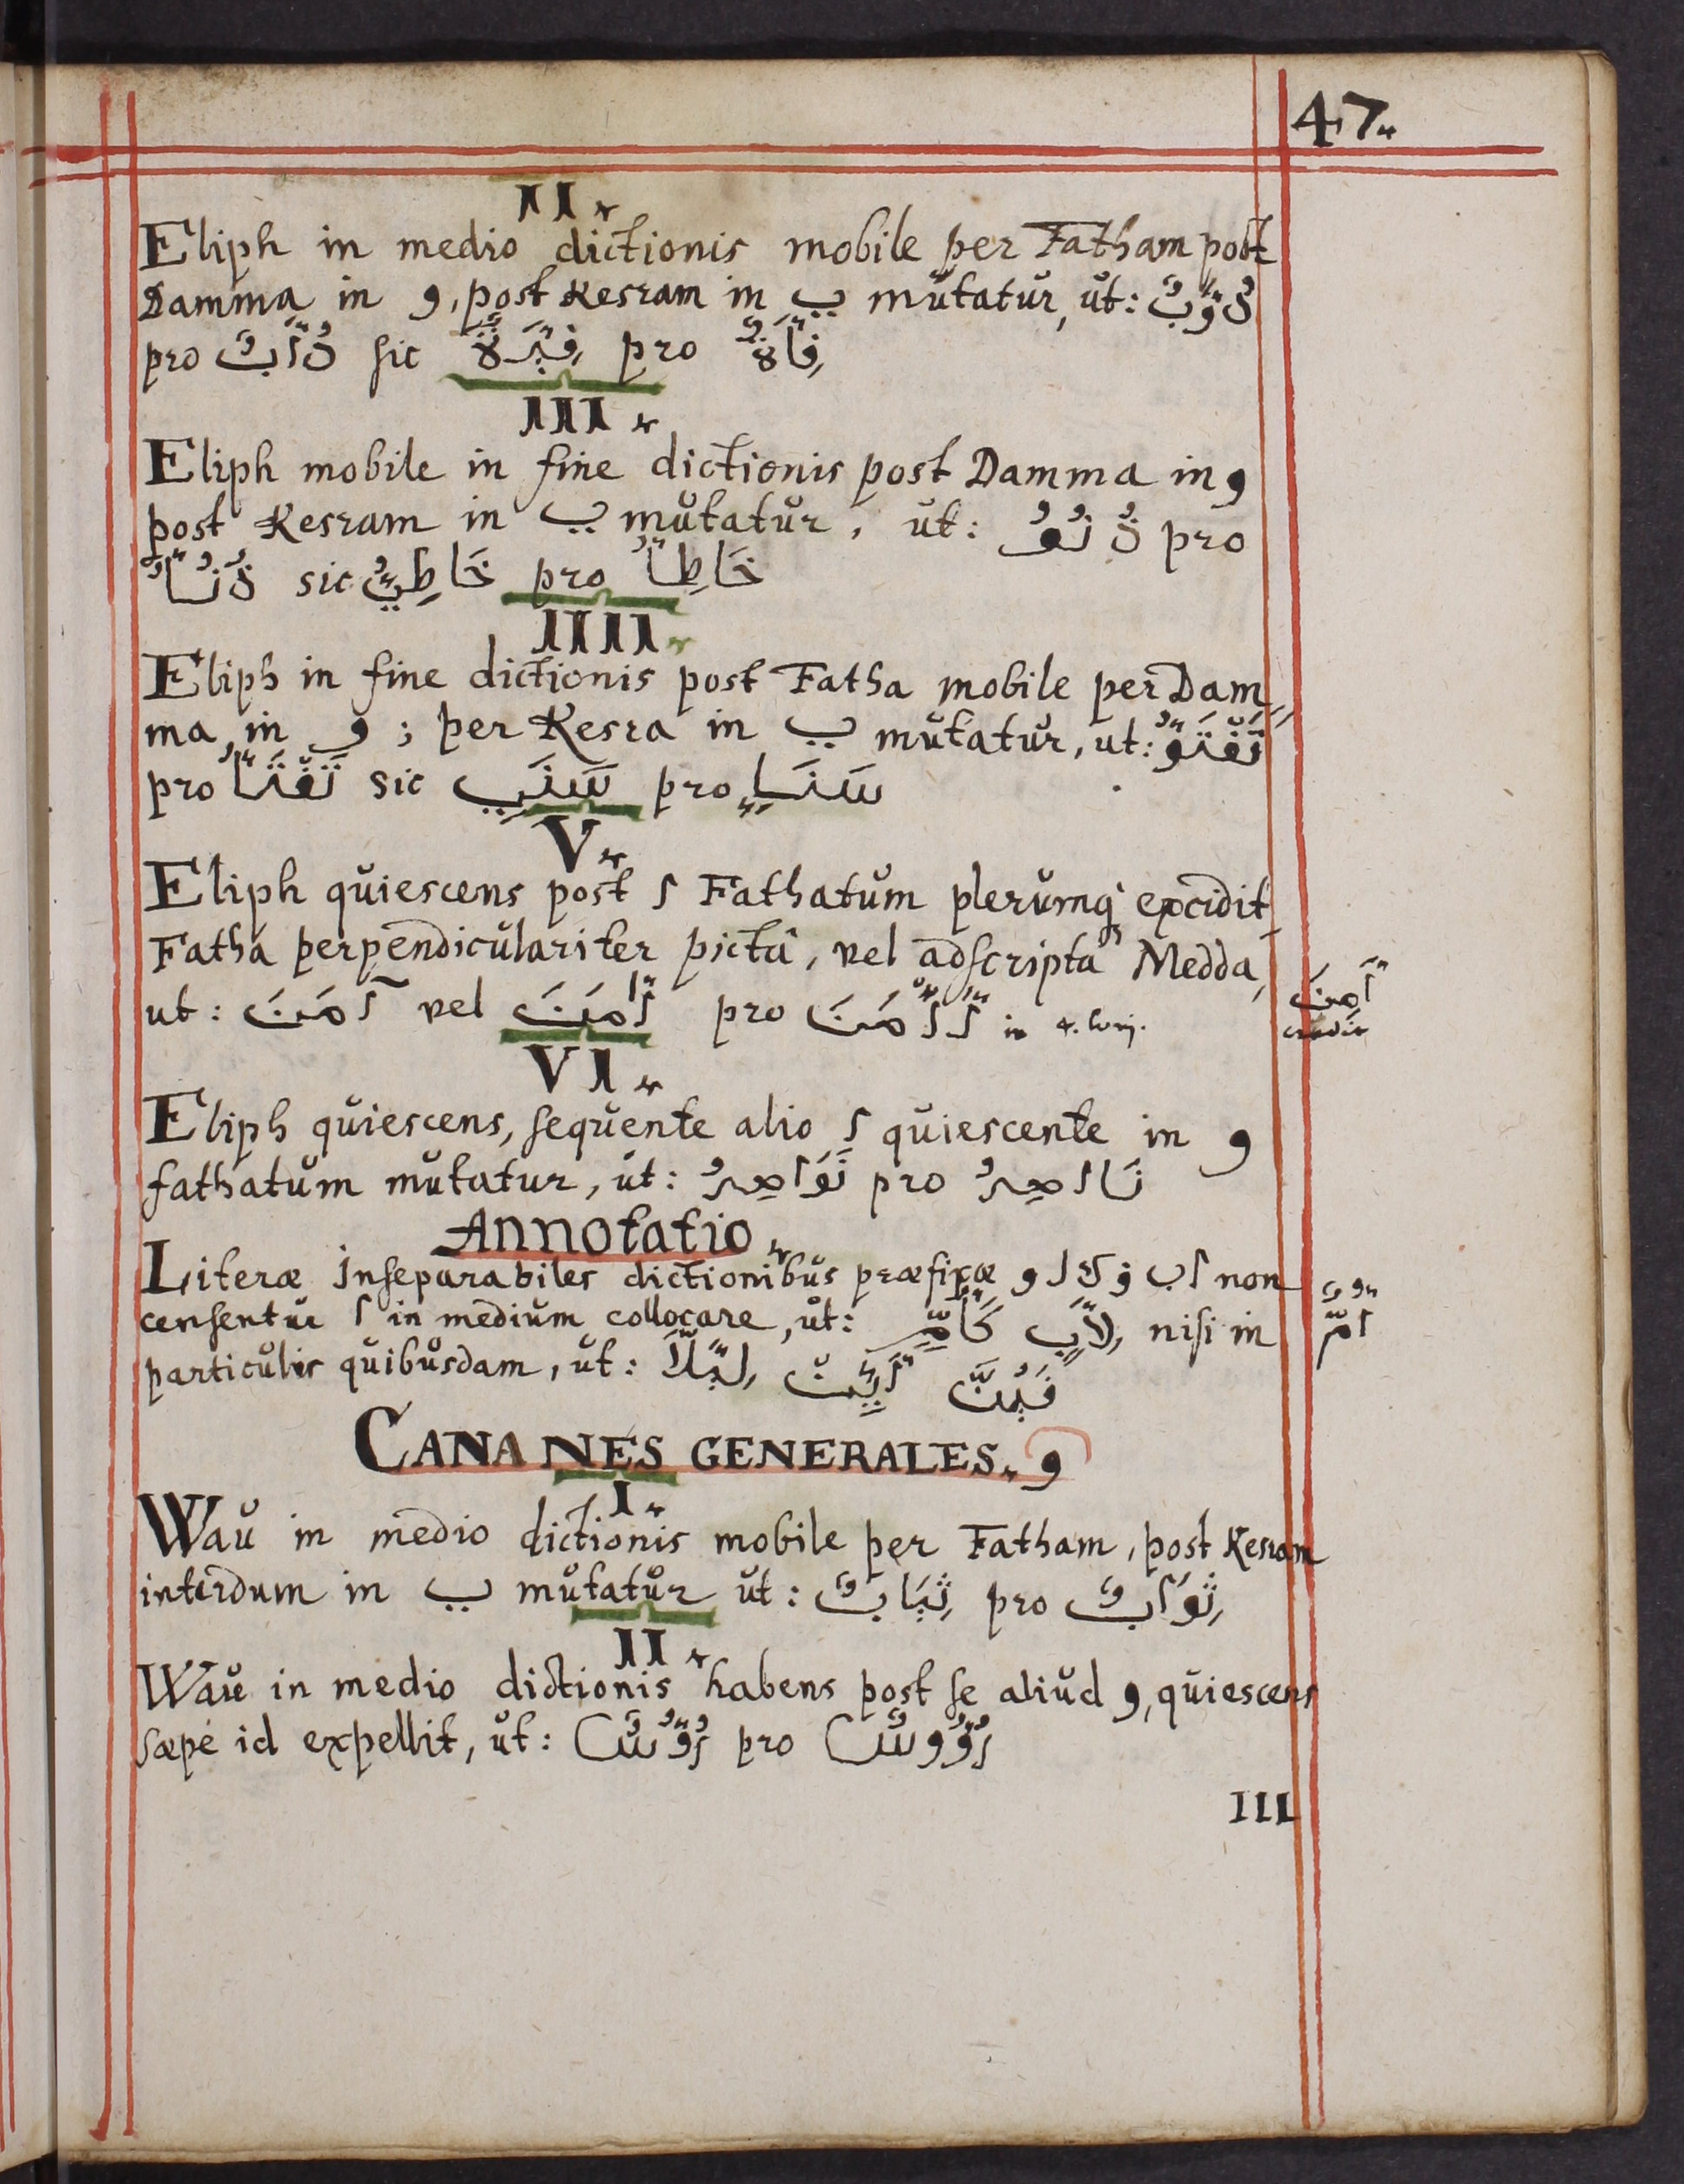 47.
II.
Eliph in medio dictionis mobile per Fatham post
Damma in و, post Kesram in ب mutatur, ut: ذُؤَبٌ
pro ذُأَبٌ sic فِئَةٌ pro فِأَةٌ
III.
Eliph mobile in fine dictionis post Damma in و
post Kesram in ب mutatur, ut: pro
sic خَاطِئٌ pro خَاطِأٌ
IIII.
Eliph in fine dictionis post Fatha mobile per Dam
ma in و ; per Kesra in ب mutatur, ut: تَفْتَؤُ
pro تَفْتَأُ sic pro
V.
Eliph quiescens post ا Fathatum plerumq; excidit
Fatha perpendiculariter picta, vel adscripta Medda,
ut: آمَنَ vel أٰمَنَ pro أَاْمَنَ in 4. Conj.
أَمِنَ
credit
VI.
Eliph quiescens, sequente alio ا quiescente in و
fathatum mutatur, ut: نَوَاصِرُ pro نَااصِرُ
Annotatio.
Literæ inseparabiles dictionibus præfixæ و ل ك ف ب ا non
censentur ا in medium collocare, ut: كَأُمٍّ لِأَبٍ nisi in
أُمٌّ
particulis quibusdam, ut: لِئَلَّا
CANANES GENERALES. و
I.
Wau in medio dictionis mobile per Fatham, post Kesram
interdum in ب mutatur ut: ثِيَابٌ pro ثِوَابٌ
II.
Wau in medio dictionis habens post se aliud و, quiescens
sæpe id expellit, ut: رُؤُسٌ pro رُؤُوسٌ
III